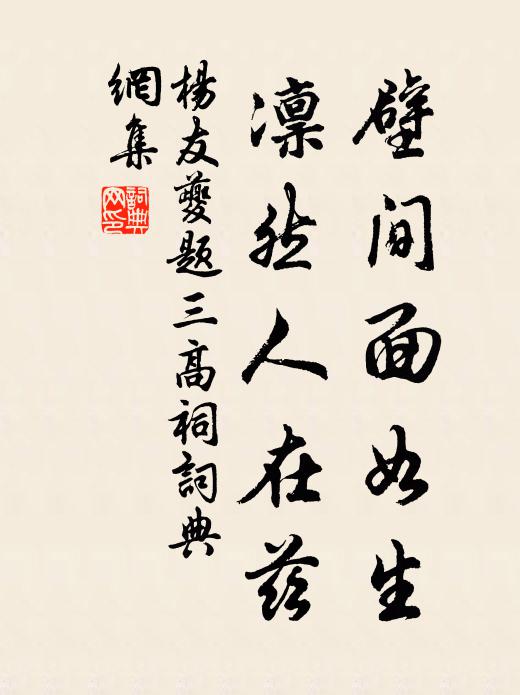 壁間面如生
凜然人在茲
楊友夔題三高祠詞典
網集
詞典網印